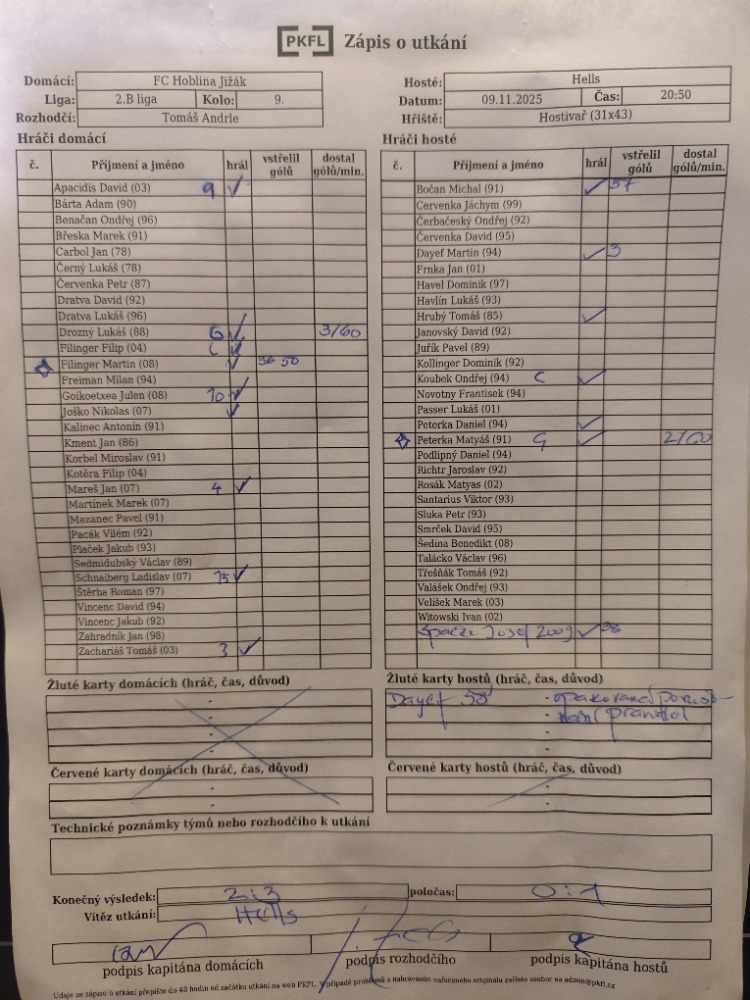 PKFL Zápis o utkání
Domácí: FC Hoblina Jižák
Liga: 2.B liga Kolo: 9.
Rozhodčí: Tomáš Andrle
Hosté: Hells
Datum: 09.11.2025 Čas: 20:50
Hřiště: Hostivař (31x43)
Hráči domácí
č. Příjmení a jméno hrál vstřelil gólů dostal gólů/min.
Apacidis David (03) 9 ✓
Bárta Adam (90)
Benačan Ondřej (96)
Břeska Marek (91)
Carbol Jan (78)
Černý Lukáš (78)
Červenka Petr (87)
Dratva David (92)
Dratva Lukáš (96)
Drozný Lukáš (88) G ✓ 3/60
Filinger Filip (04) C ✓
Filinger Martin (08) ✓ 36 50
Freiman Milan (94)
Goikoetxea Julen (08) 10 ✓
Joško Nikolas (07) ✓
Kalinec Antonín (91)
Kment Jan (86)
Korbel Miroslav (91)
Kotěra Filip (04)
Mareš Jan (07) 4 ✓
Martínek Marek (07)
Mazanec Pavel (91)
Pacák Vilém (92)
Plaček Jakub (93)
Sedmidubský Václav (89)
Schnaiberg Ladislav (07) 15 ✓
Štěrba Roman (97)
Vincenc David (94)
Vincenc Jakub (92)
Zahradník Jan (98)
Zachariáš Tomáš (03) 3 ✓
Hráči hosté
č. Příjmení a jméno hrál vstřelil gólů dostal gólů/min.
Bočan Michal (91) ✓ 57
Červenka Jáchym (99)
Čerbačeský Ondřej (92)
Červenka David (95)
Dayef Martin (94) ✓ 3
Frnka Jan (01)
Havel Dominik (97)
Havlín Lukáš (93)
Hrubý Tomáš (85) ✓
Janovský David (92)
Juřík Pavel (89)
Kollinger Dominik (92)
Koubek Ondřej (94) C ✓
Novotny Frantisek (94)
Passer Lukáš (01)
Peterka Daniel (94) ✓
Peterka Matyáš (91) G ✓ 2/60
Podlipný Daniel (94)
Richtr Jaroslav (92)
Rosák Matyas (02)
Santarius Viktor (93)
Sluka Petr (93)
Smrček David (95)
Šedina Benedikt (08)
Talácko Václav (96)
Třešňák Tomáš (92)
Valášek Ondřej (93)
Velíšek Marek (03)
Witowski Ivan (02)
Josef 2009 ✓ 38
Žluté karty domácích (hráč, čas, důvod)
-
-
Červené karty domácích (hráč, čas, důvod)
-
-
Žluté karty hostů (hráč, čas, důvod)
Dayef 58 - opakované poruš-
- ní pravidel
-
Červené karty hostů (hráč, čas, důvod)
-
-
Technické poznámky týmů nebo rozhodčího k utkání
Konečný výsledek: 2:3 poločas: 0:1
Vítěz utkání: Hells
podpis kapitána domácích podpis rozhodčího podpis kapitána hostů
Údaje ze zápisu o utkání přepište do 48 hodin od začátku utkání na web PKFL. V případě problémů s nahráváním nafoceného originálu zašlete soubor na admin@pkfl.cz